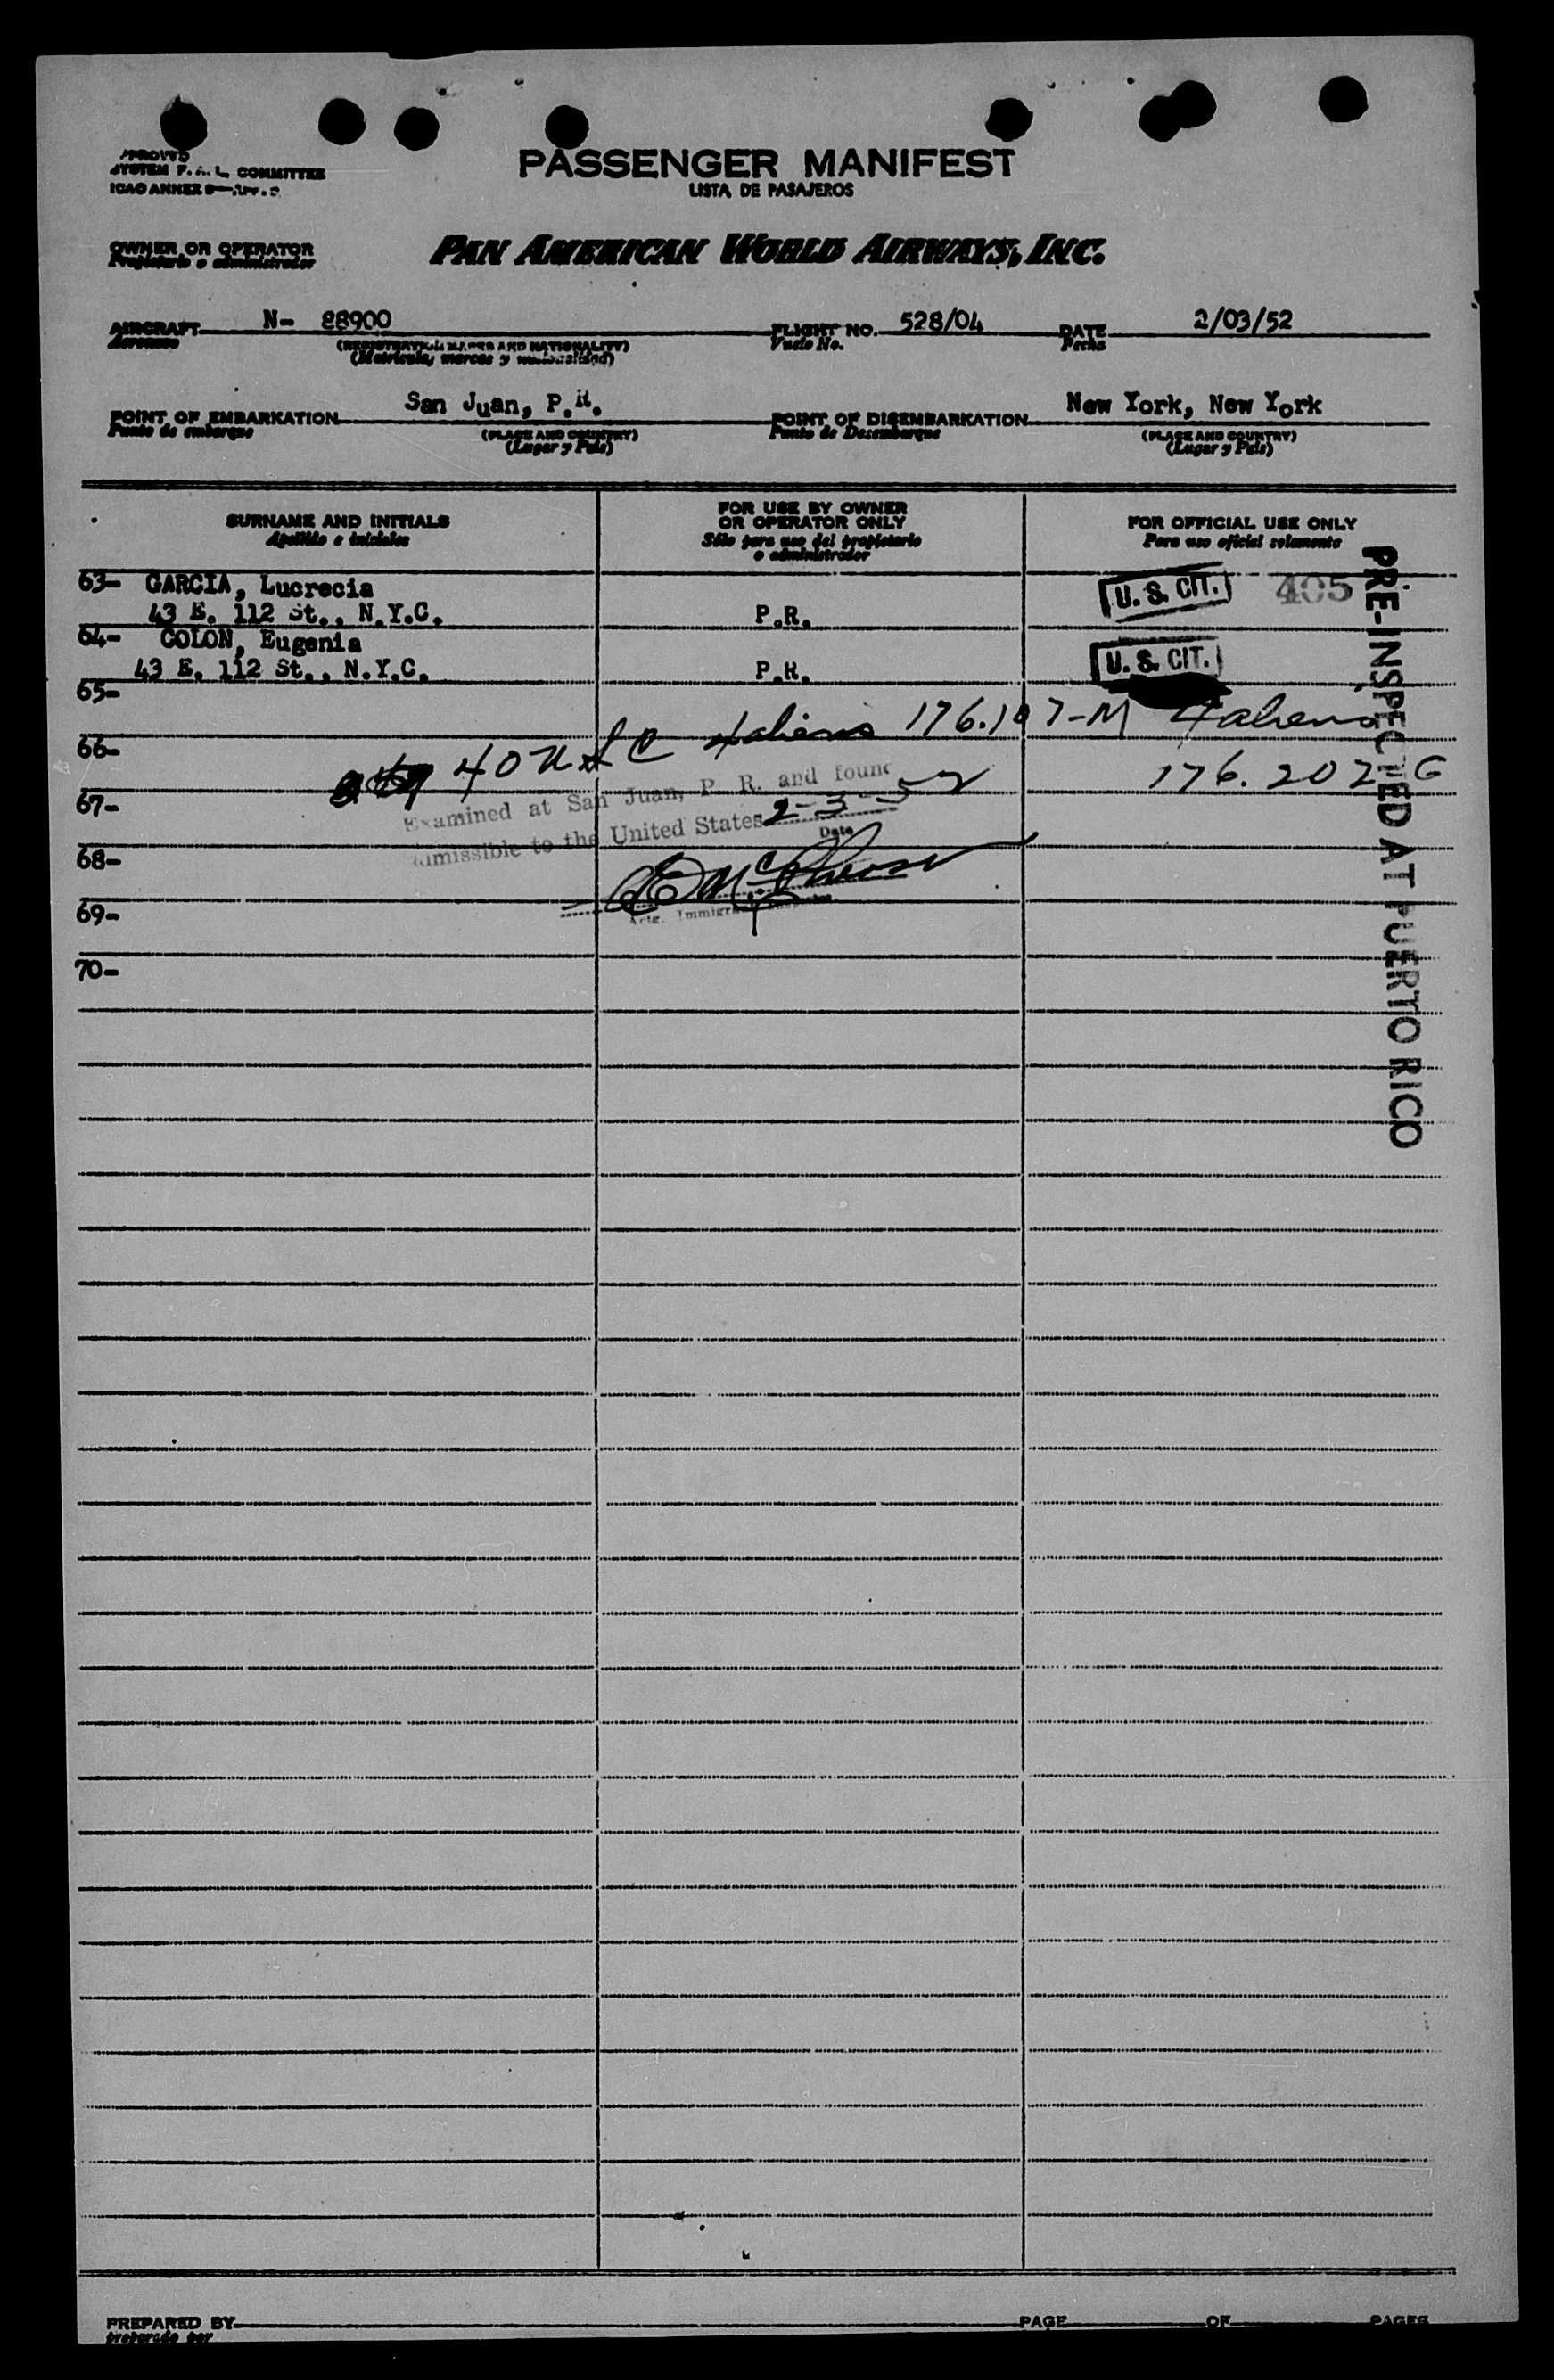 APPROVED
SYSTEM F.A.L. COMMITTEE
ICAO ANNEX 9
PASSENGER MANIFEST
LISTA DE PASAJEROS
OWNER OR OPERATOR
Propietario o administrador
PAN AMERICAN WORLD AIRWAYS, INC.
AIRCRAFT N- 88900 FLIGHT NO. 528/04 DATE 2/03/52
Aeronave (REGISTRATION MARKS AND NATIONALITY) Vuelo No. Fecha
(Matricula, marcas y nacionalidad)
POINT OF EMBARKATION San Juan, P.R. POINT OF DISEMBARKATION New York, New York
Punto de embarque (PLACE AND COUNTRY) Punto de Desembarque (PLACE AND COUNTRY)
(Lugar y Pais) (Lugar y Pais)
SURNAME AND INITIALS
Apellido e iniciales
FOR USE BY OWNER
OR OPERATOR ONLY
Sólo para uso del propietario
o administrador
FOR OFFICIAL USE ONLY
Para uso oficial solamente
63- GARCIA, Lucrecia U. S. CIT. 405
43 E. 112 St., N.Y.C. P.R.
64- COLON, Eugenia
43 E. 112 St., N.Y.C. P.R. U. S. CIT.
65-
4 aliens 176.107-M 4 aliens
66-
40 USC 176.202 G
67-
Examined at San Juan, P. R. and found
admissible to the United States 2-3-52
Date
68-
69-
Actg. Immigrant Inspector
70-
PRE-INSPECTED AT PUERTO RICO
PREPARED BY PAGE OF PAGES
Preparado por